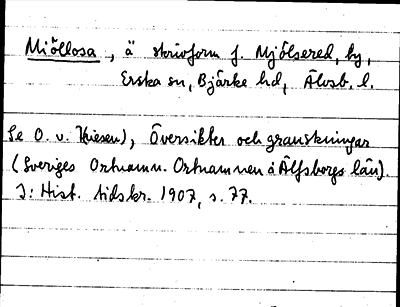 Miöllosa, ä skrivform f. Mjölsered, by,
Erska sn, Bjärke hd, Älvsb. l.
Se O. v. Friesen), Översikter och granskningar
(Sveriges Ortnamn. Ortnamnen i Älfsborgs län).
I: Hist. tidskr. 1907, s. 77.